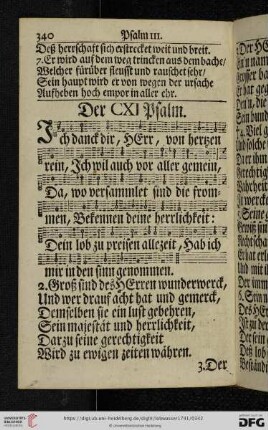 340 Psalm 111.
Deß herrschaft sich erstrecket weit und breit.
7. Er wird auf dem weg trincken aus dem bache/
Welcher fürüber fleusst und rauschet sehr/
Sein haupt wird er von wegen der ursache
Aufheben hoch empor in aller ehr.
Der CXI Psalm.
Ich danck dir, HErr, von hertzen
rein, Ich wil auch vor aller gemein,
Da, wo versammlet sind die from-
men, Bekennen deine herrlichkeit:
Dein lob zu preisen allezeit, Hab ich
mir in den sinn genommen.
2. Groß sind des HErren wunderwerck,
Und wer drauf acht hat und gemerck,
Demselben sie ein lust gebehren,
Sein majestät und herrlichkeit,
Darzu seine gerechtigkeit
Wird zu ewigen zeiten währen.
3. Der
UNIVERSITÄTS-
BIBLIOTHEK
HEIDELBERG
© Universitätsbibliothek Heidelberg
Gefördert durch die
DFG